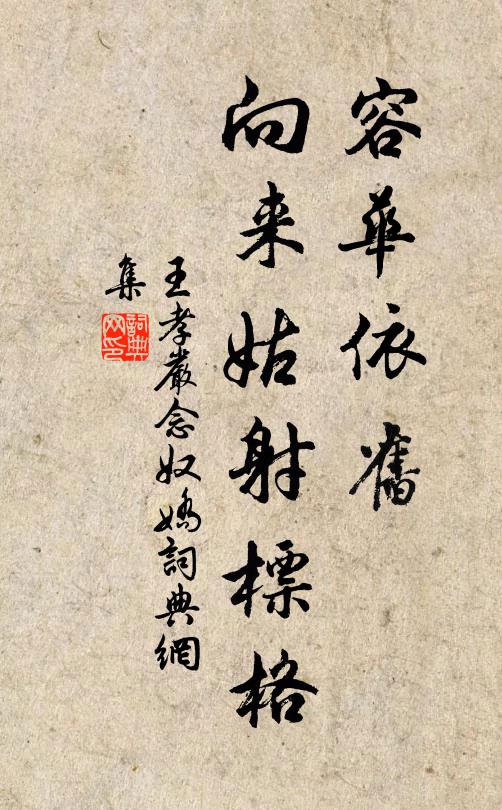 容華依舊
向来姑射標格
王孝嚴念奴嬌詞典網
集
詞典
网印